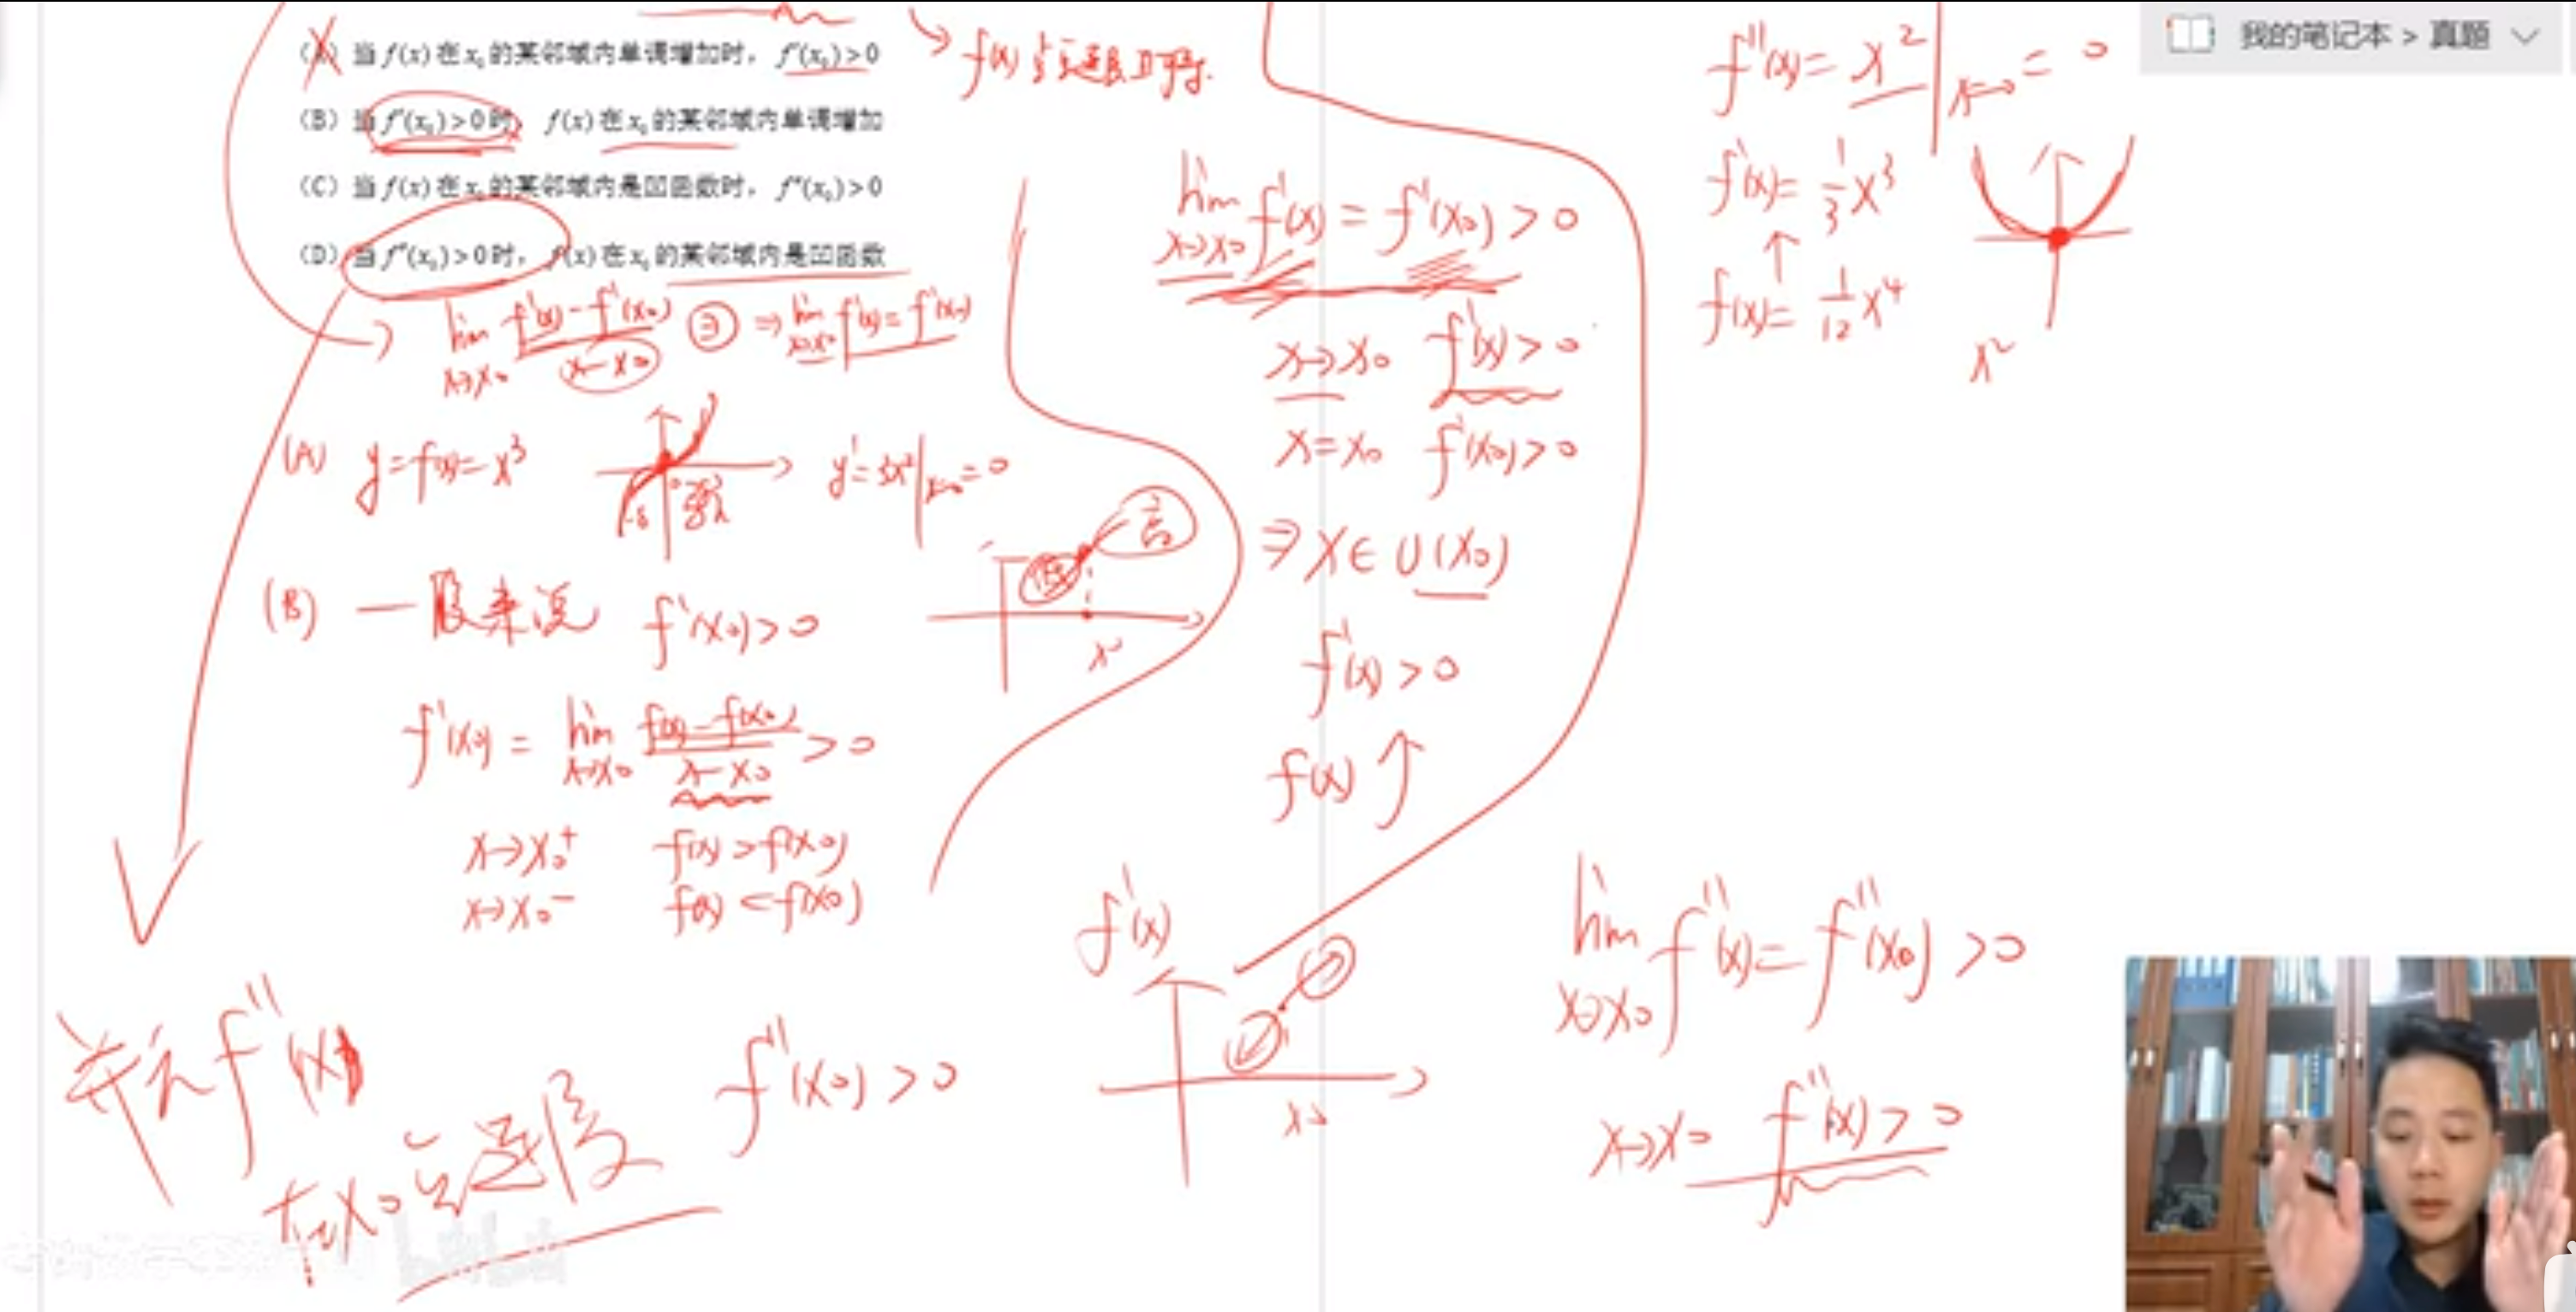 我的笔记本 > 真题
(A) 当 f(x) 在 x₀ 的某邻域内单调增加时，f'(x₀)>0
(B) 当 f'(x₀)>0 时，f(x) 在 x₀ 的某邻域内单调增加
(C) 当 f(x) 在 x₀ 的某邻域内是凹函数时，f''(x₀)>0
(D) 当 f''(x₀)>0 时，f(x) 在 x₀ 的某邻域内是凹函数
lim x→x₀ (f'(x)-f'(x₀))/(x-x₀) ∃ ⇒ lim x→x₀ f'(x)=f'(x₀)
(A) y=f(x)=x³
y'=3x²|x=0=0
(B) 一般来说 f'(x₀)>0
f'(x₀) = lim x→x₀ (f(x)-f(x₀))/(x-x₀) >0
x→x₀⁺ f(x)>f(x₀)
x→x₀⁻ f(x)<f(x₀)
f''(x)
在x₀
连续
f''(x₀)>0
低
高
x₀
lim x→x₀ f'(x) = f'(x₀) >0
x→x₀ f'(x)>0
x=x₀ f'(x₀)>0
⇒ x∈U(x₀)
f'(x)>0
f(x)↑
f'(x)
x₀
f''(x)=x²|x=0=0
f'(x)=1/3 x³
↑
f(x)=1/12 x⁴
x²
lim x→x₀ f''(x)=f''(x₀)>0
x→x₀ f''(x)>0